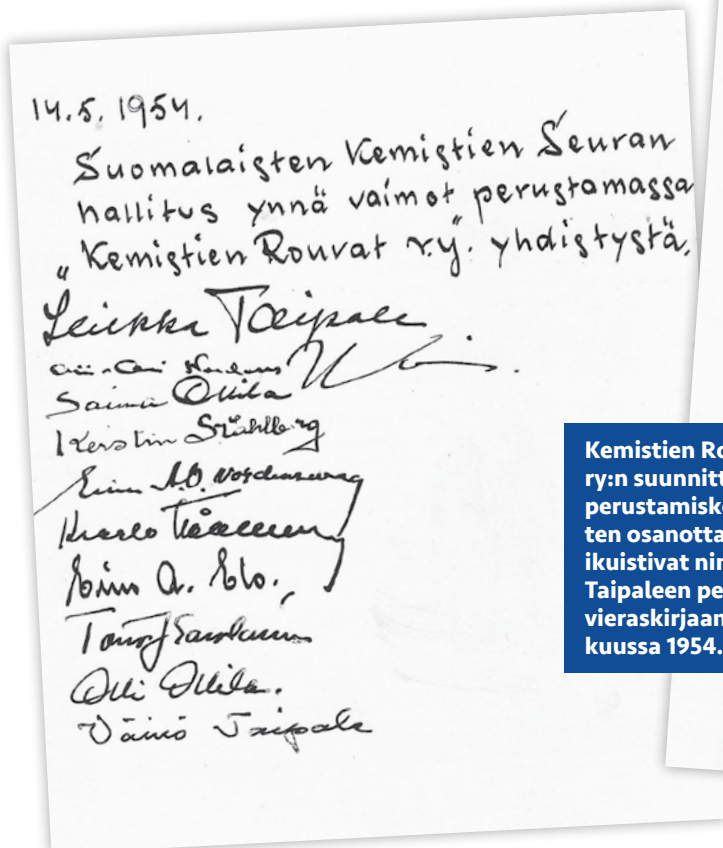 14.5.1954.
Suomalaisten Kemistien Seuran
hallitus ynnä vaimot perustamassa
„Kemistien Rouvat r.y." yhdistystä.
Leickka Taipale
Saima Ollila
Kerstin Ståhlberg
A.O. Nordenswan
Kaarlo
Eino A. Elo.
Olli Ollila.
Väinö Taipale
Kemistien Ro
ry:n suunnitt
perustamisko
ten osanotta
ikuistivat nim
Taipaleen pe
vieraskirjaan
kuussa 1954.